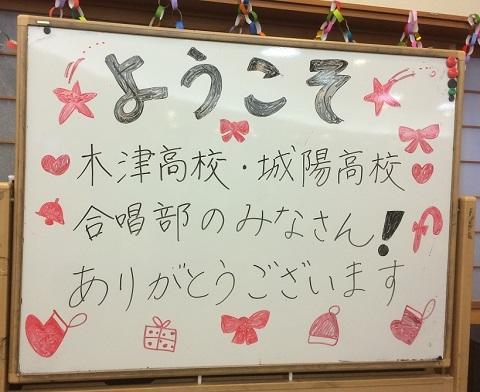 ようこそ
木津高校・城陽高校
合唱部のみなさん!
ありがとうございます